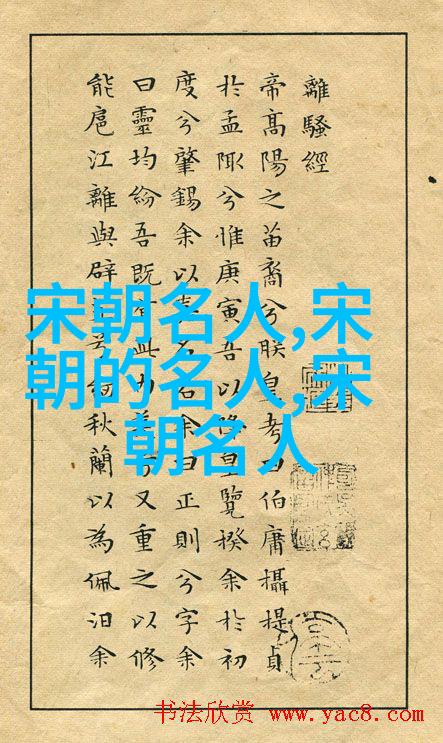 離騷經
帝高陽之苗裔兮朕皇考曰伯庸攝提貞
於孟陬兮惟庚寅吾以降皇覽揆余於初
度兮肇錫余以嘉名名余曰正則兮字余
曰靈均紛吾既有此內美兮又重之以修
能扈江離與辟芷兮紉秋蘭以為佩汨余
宋朝名人,宋
朝的名人,宋
朝名人
书法欣赏 www.yac8.com